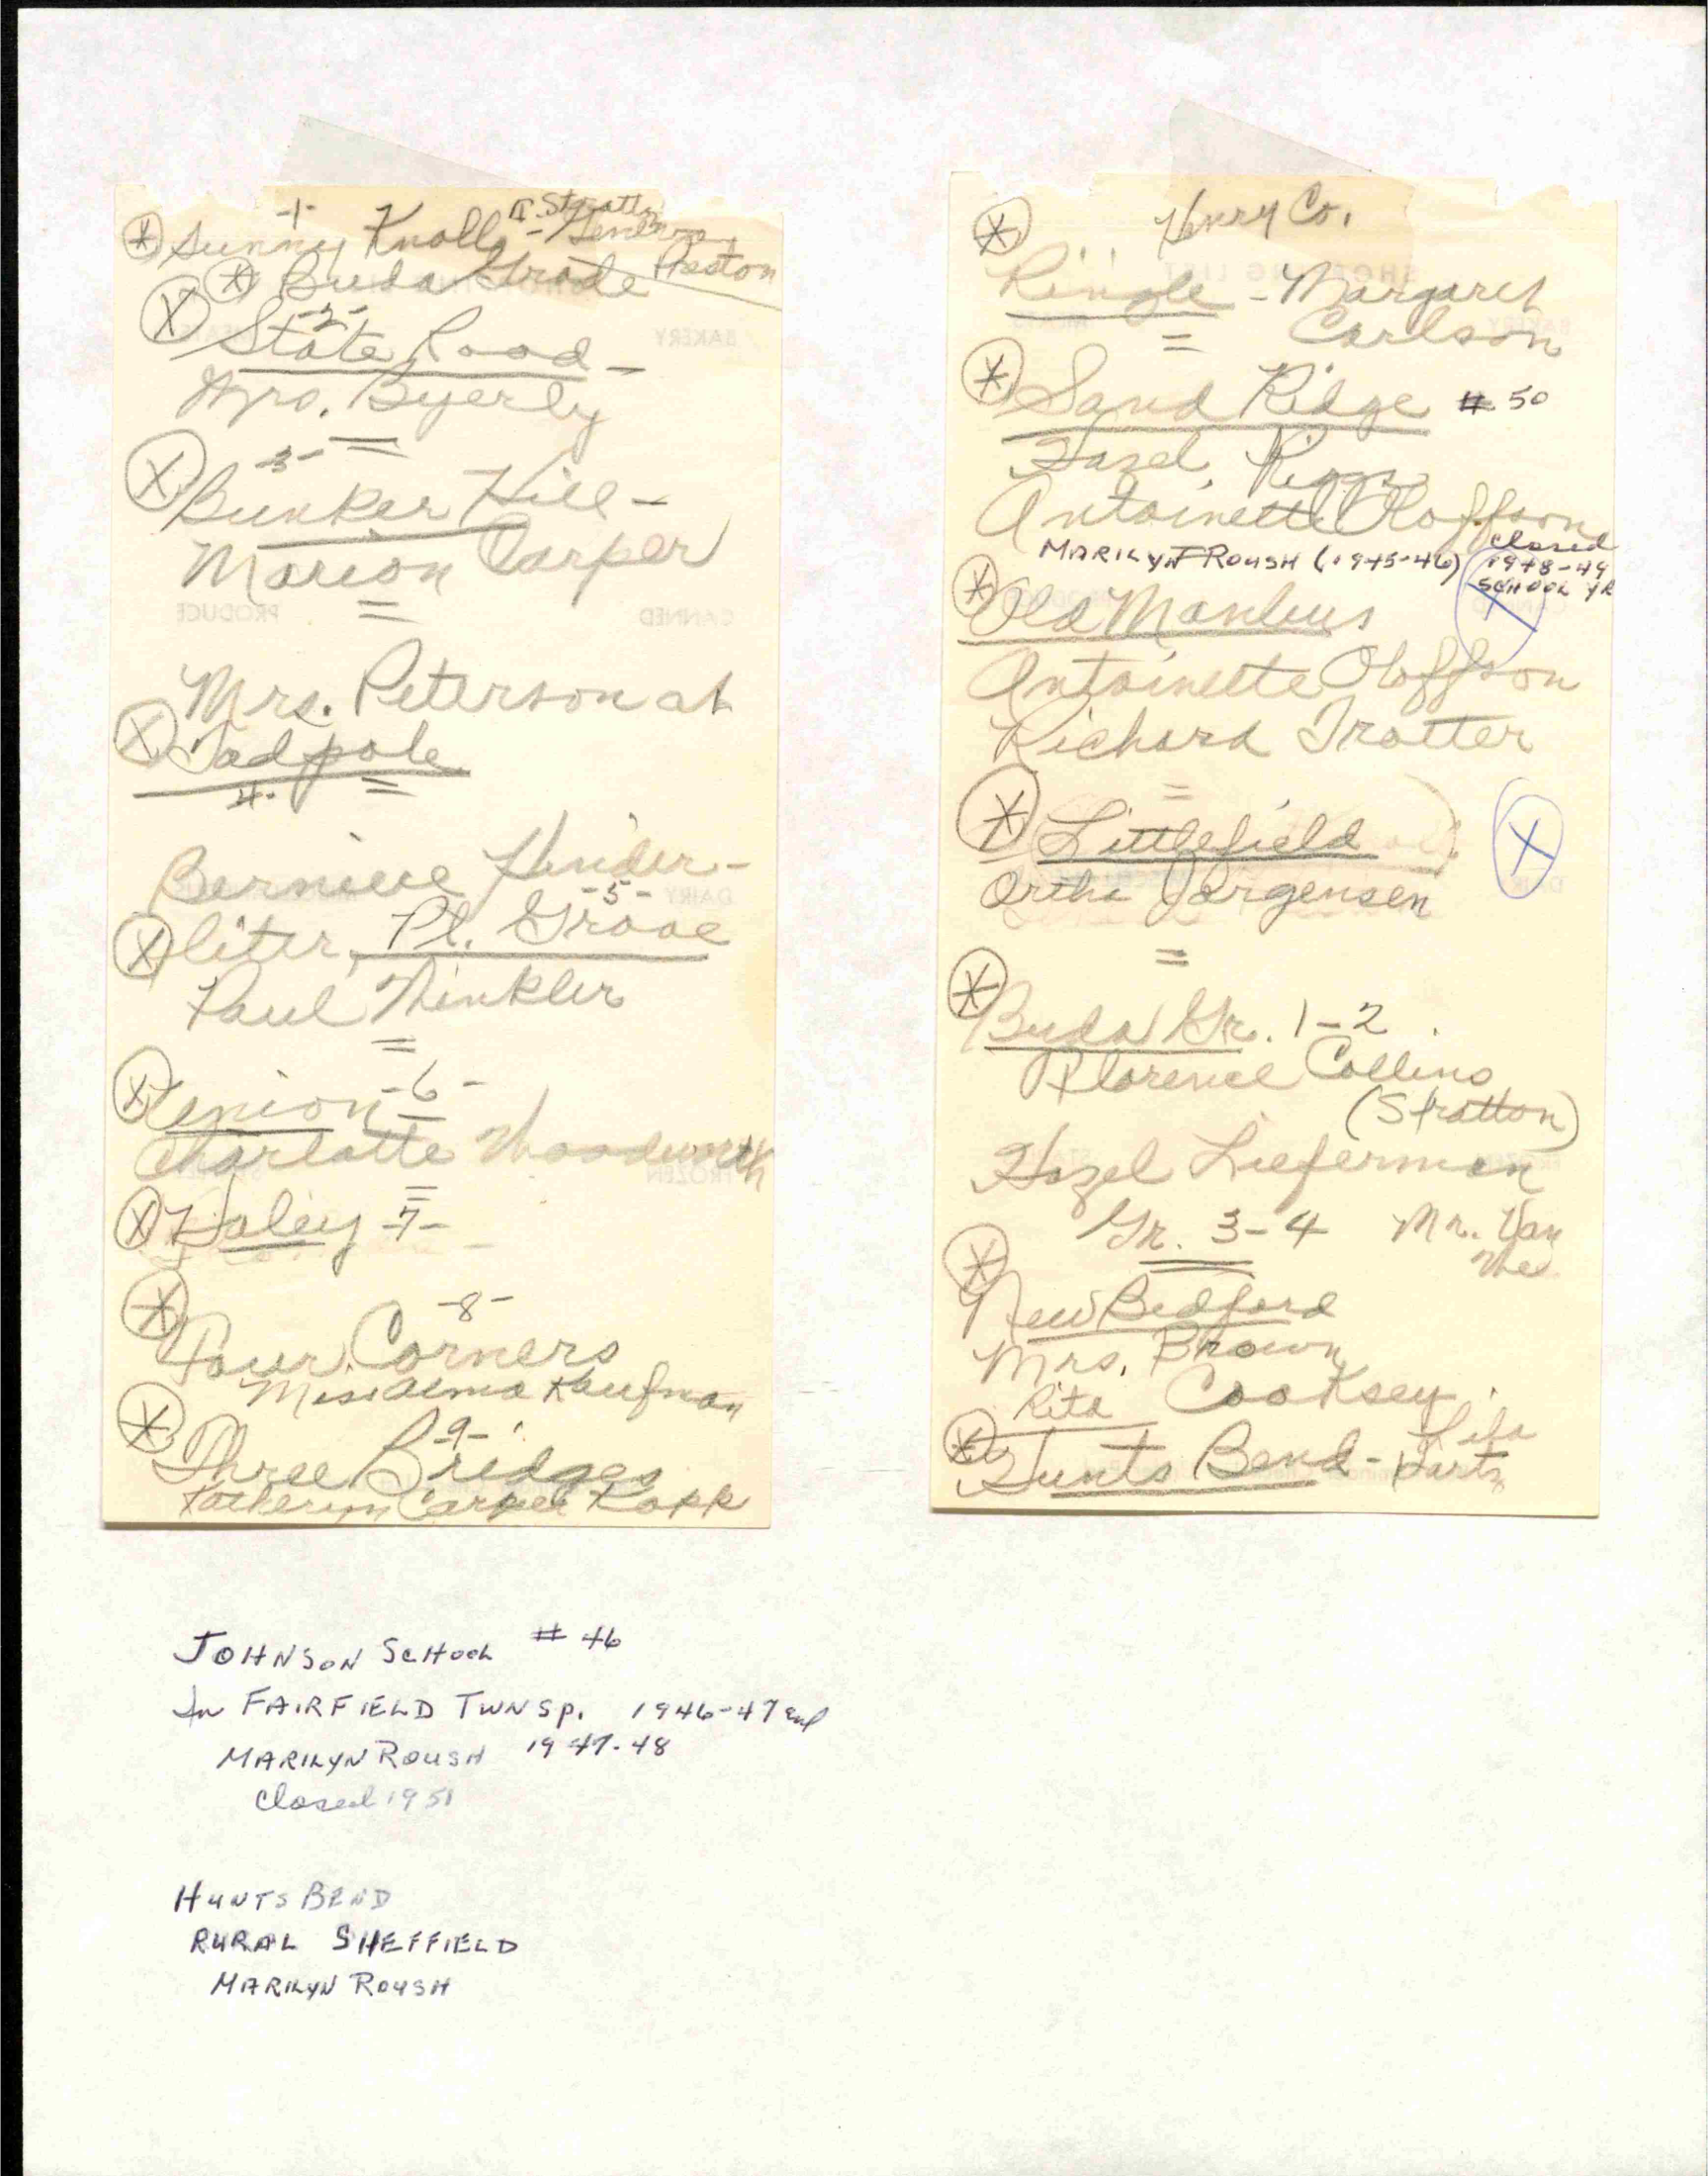 -1-
Sunny Knolls -
Preston
Buda Grade
-2-
State Road -
Mrs. Byerly
-3-
Bunker Hill -
Marion Carper
Mrs. Peterson at
Tadpole
4.
Berniece Hinder-
-5-
liter, Pl. Grove
Paul Winkler
Union -6-
Charlotte Woodworth
Haley -7-
-8-
Four Corners
Miss Alma Kaufman
-9-
Three Bridges
Katheryn Carper Kopp
Henry Co.
Ringle - Margaret
Carlson
Sand Ridge # 50
Hazel
Antoinette Oloffson
MARILYN ROUSH (1945-46)
Closed
1948-49
SCHOOL YR
Old Manlius
Antoinette Oloffson
Richard Trotter
Littlefield
Ortha Jorgensen
Buda Gr. 1-2
Florence Collins
(Stratton)
Hazel Lieferman
Gr. 3-4 Mr. Van
New Bedford
Mrs. Brown
Rita Cooksey
Hunts Bend -
JOHNSON SCHOOL # 46
In FAIRFIELD TWNSP. 1946-47 and
MARILYN ROUSH 1947-48
Closed 1951
HUNTS BEND
RURAL SHEFFIELD
MARILYN ROUSH